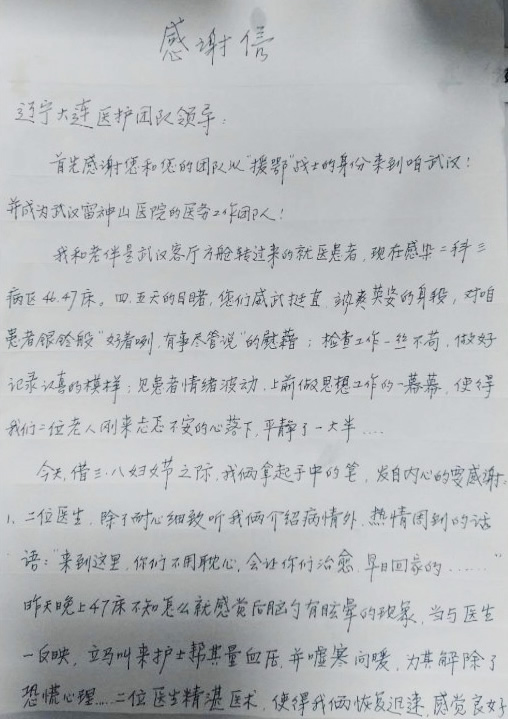 感谢信
辽宁大连医护团队领导：
首先感谢您和您的团队以"援鄂"战士的身份来到咱武汉！
并成为武汉雷神山医院的医务工作团队！
我和老伴是武汉客厅方舱转过来的就医患者，现在感染二科三
病区46.47床。四、五天的目睹，您们威武挺直、飒爽英姿的身段，对咱
患者银铃般"好着咧，有事尽管说"的慰藉；检查工作一丝不苟，做好
记录认真的模样；见患者情绪波动，上前做思想工作的一幕幕，使得
我们二位老人刚来忐忑不安的心落下，平静了一大半....
今天，借三·八妇女节之际，我俩拿起手中的笔，发自内心的要感谢：
1、二位医生，除了耐心细致听我俩介绍病情外，热情周到的话
语："来到这里，你们不用耽心，会让你们治愈，早日回家的......"
昨天晚上47床不知怎么就感觉后脑勺有眩晕的现象，当与医生
一反映，立马叫来护士帮其量血压，并嘘寒问暖，为其解除了
恐慌心理....二位医生精湛医术，使得我俩恢复迅速，感觉良好